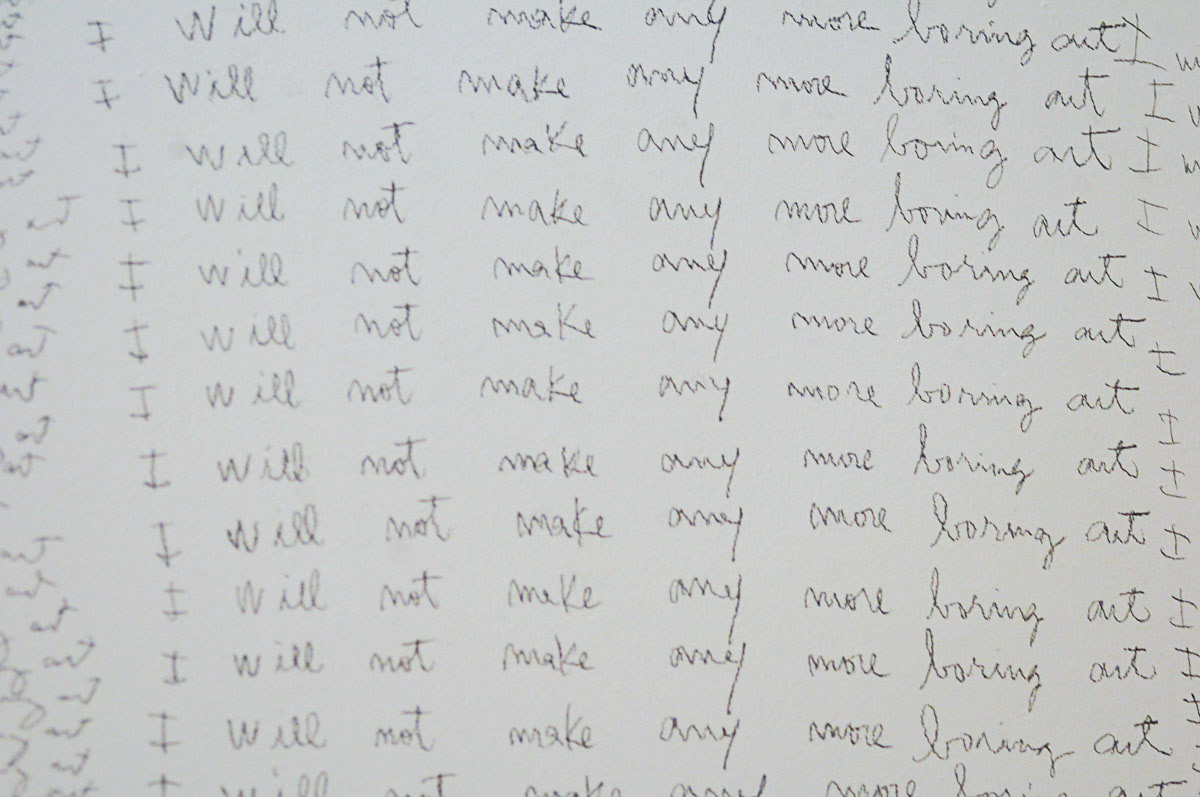 I Will not make any more boring art I
I Will not make any more boring art I
I Will not make any more boring art I
art I Will not make any more boring art I
art I Will not make any more boring art I
art I Will not make any more boring art I
art I Will not make any more boring art I
art I Will not make any more boring art I
art I Will not make any more boring art I
art I Will not make any more boring art I
art I Will not make any more boring art I
art I Will not make any more boring art
I Will not make any more boring art